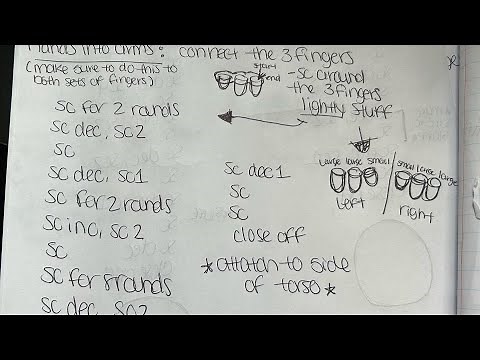 Hands into arms: connect the 3 fingers
(make sure to do this to
both sets of fingers)
start
end
-sc around
the 3 fingers
lightly stuff
sc for 2 rounds
sc dec, sc2
sc
sc dec, sc1
sc for 2 rounds
sc inc, sc 2
sc
sc for 8 rounds
sc dec, sc2
sc dec 1
sc
sc
close off
*attatch to side
of torso*
large large small
left
small large large
right